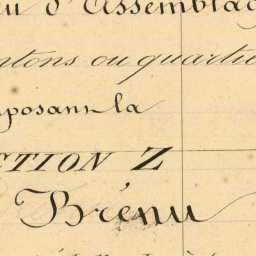 au d'Assemblag
ntons ou quartie
posant la
CTION Z
Brénu